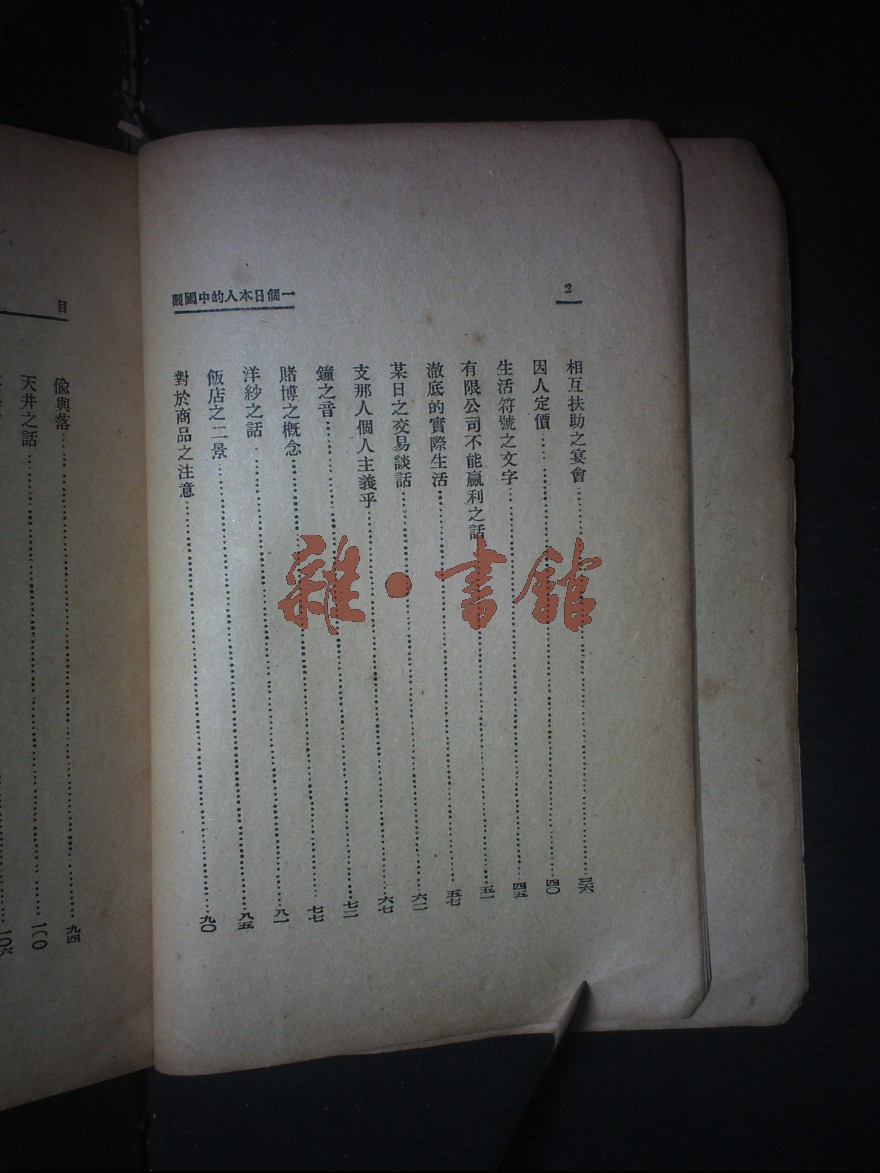 2
一個日本人的中國觀
相互扶助之宴會……三六
因人定價……四〇
生活符號之文字……四五
有限公司不能贏利之話……五一
澈底的實際生活……五七
某日之交易談話……六二
支那人個人主義乎……六七
鐘之音……七二
賭博之概念……七七
洋紗之話……八一
飯店之二景……八五
對於商品之注意……九〇
目
偸與落……九四
天井之話……一〇〇
一〇六
雜·書館